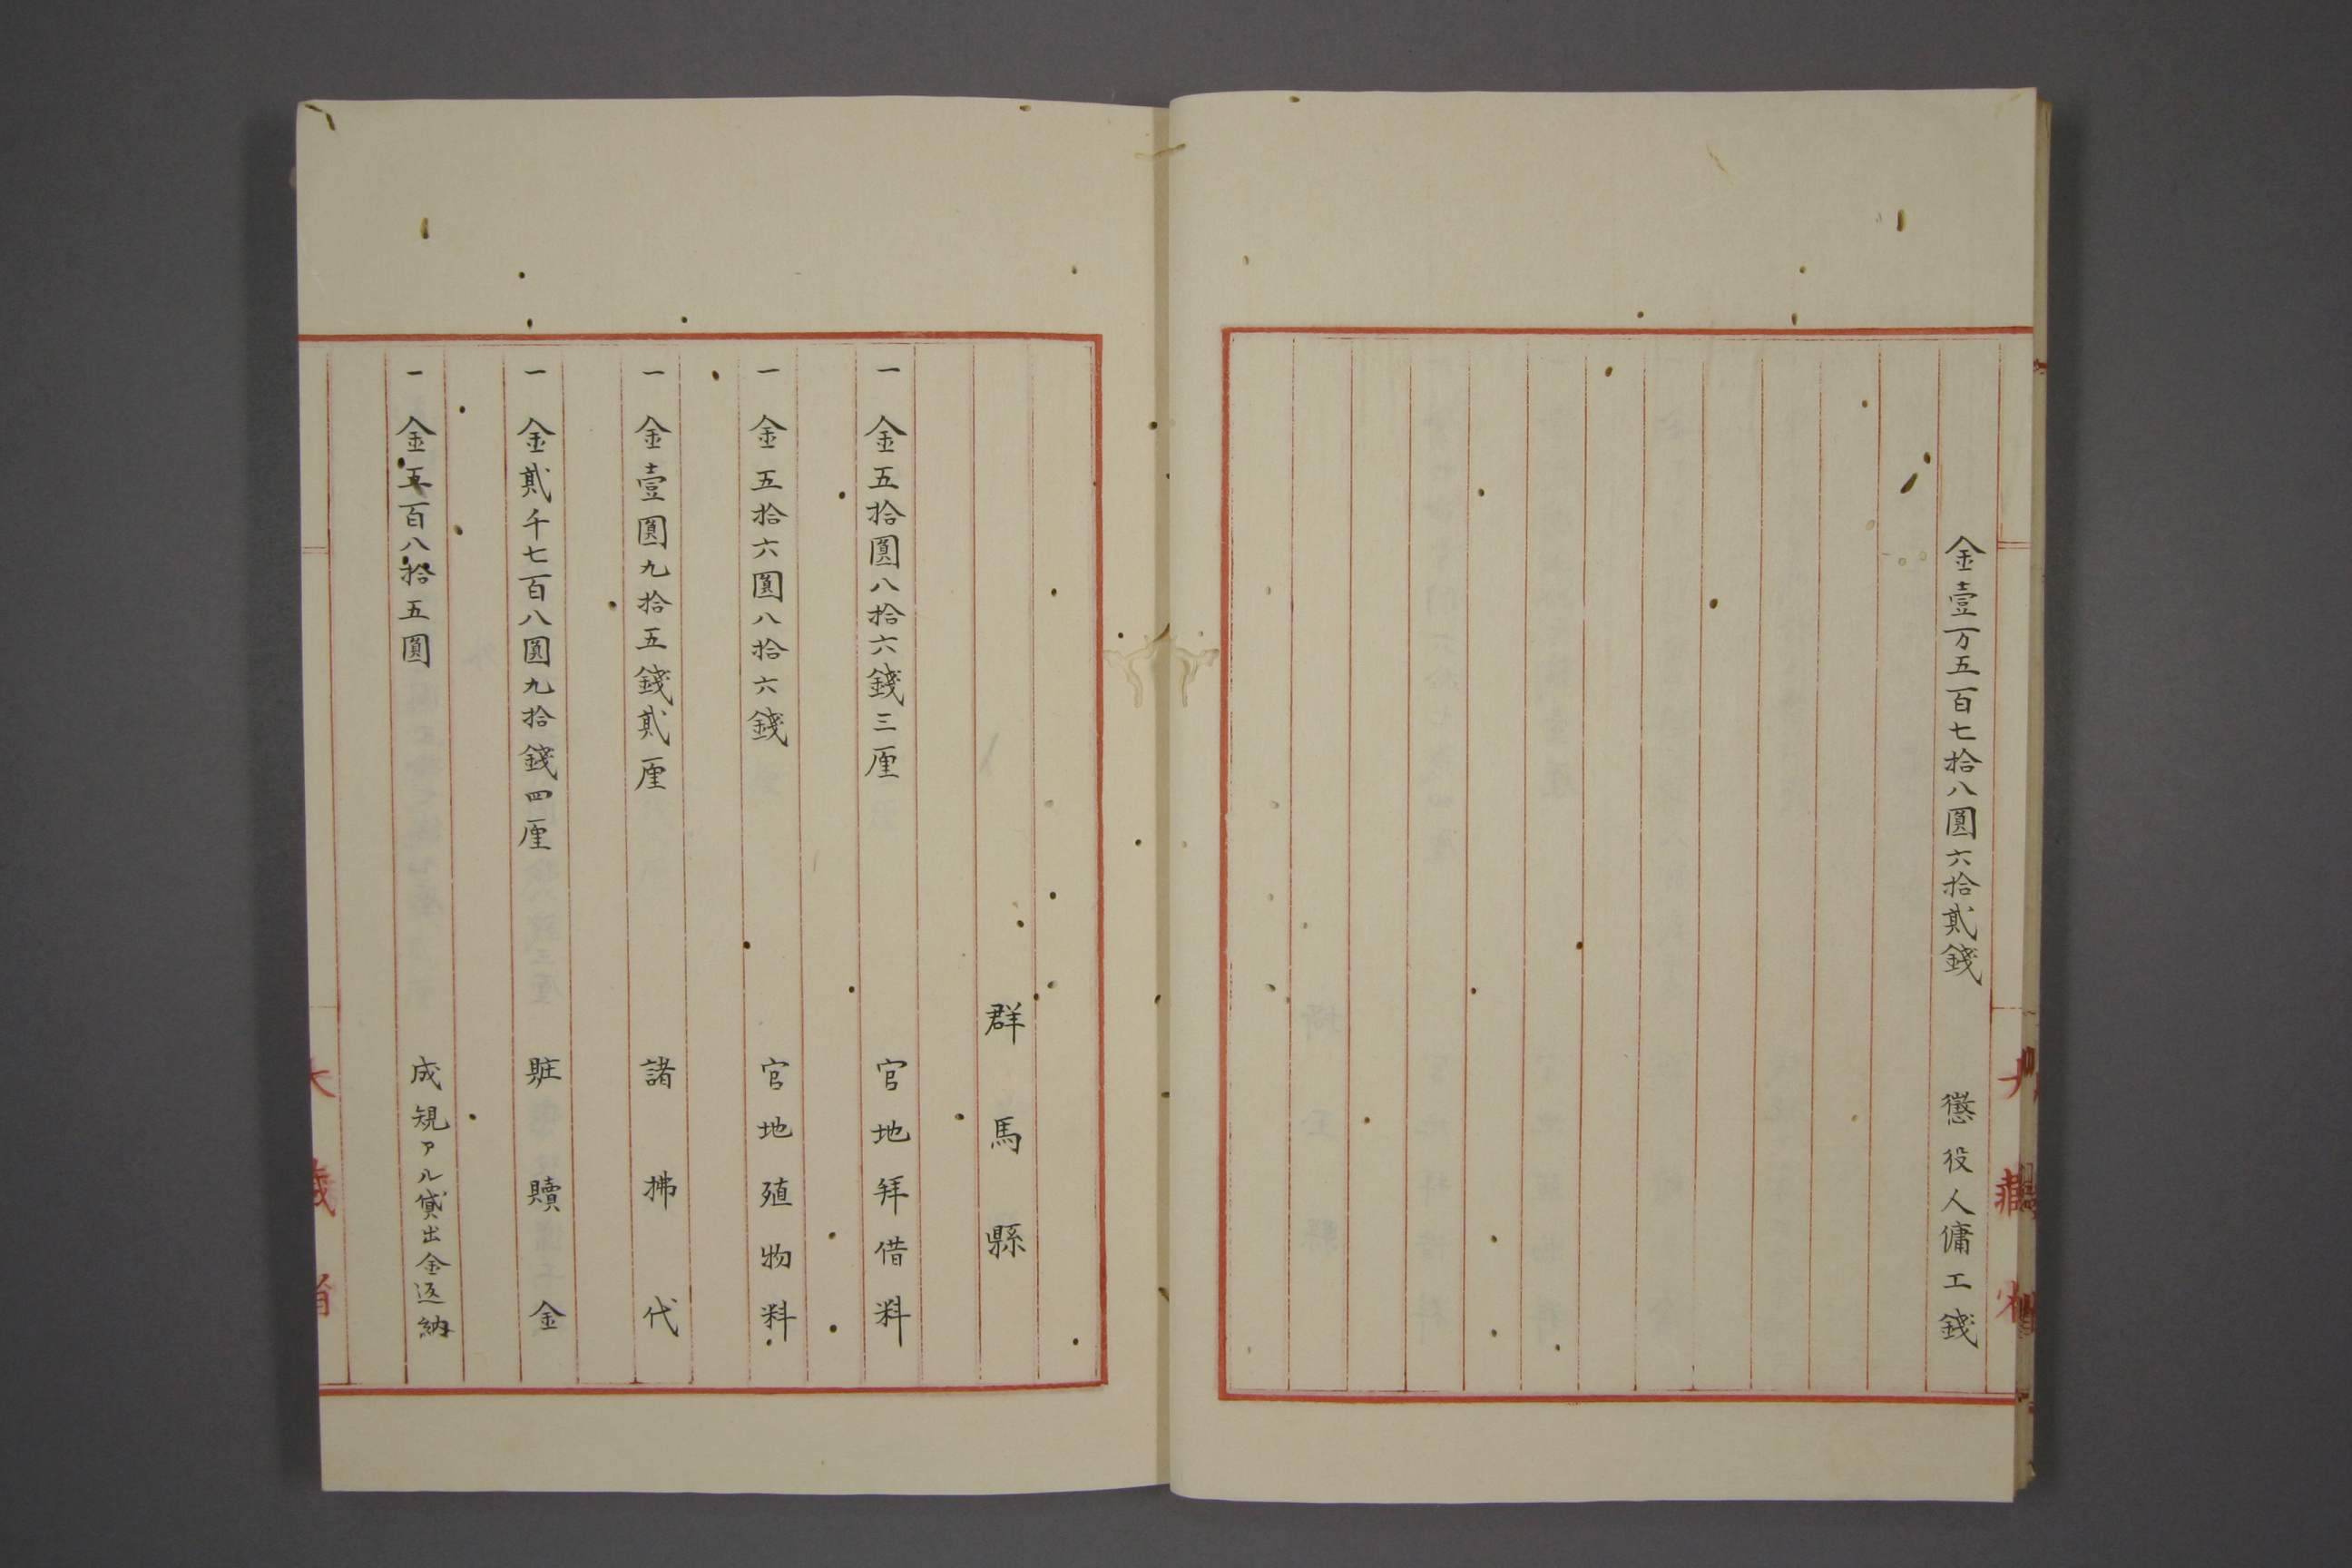 金壹万五百七拾八圓六拾貳錢 懲役人傭工錢
群馬縣
一 金五拾圓八拾六錢三厘 官地拜借料
一 金五拾六圓八拾六錢 官地殖物料
一 金壹圓九拾五錢貳厘 諸拂代
一 金貳千七百八圓九拾錢四厘 賍贖金
一 金五百八拾五圓 成規アル貸出金返納